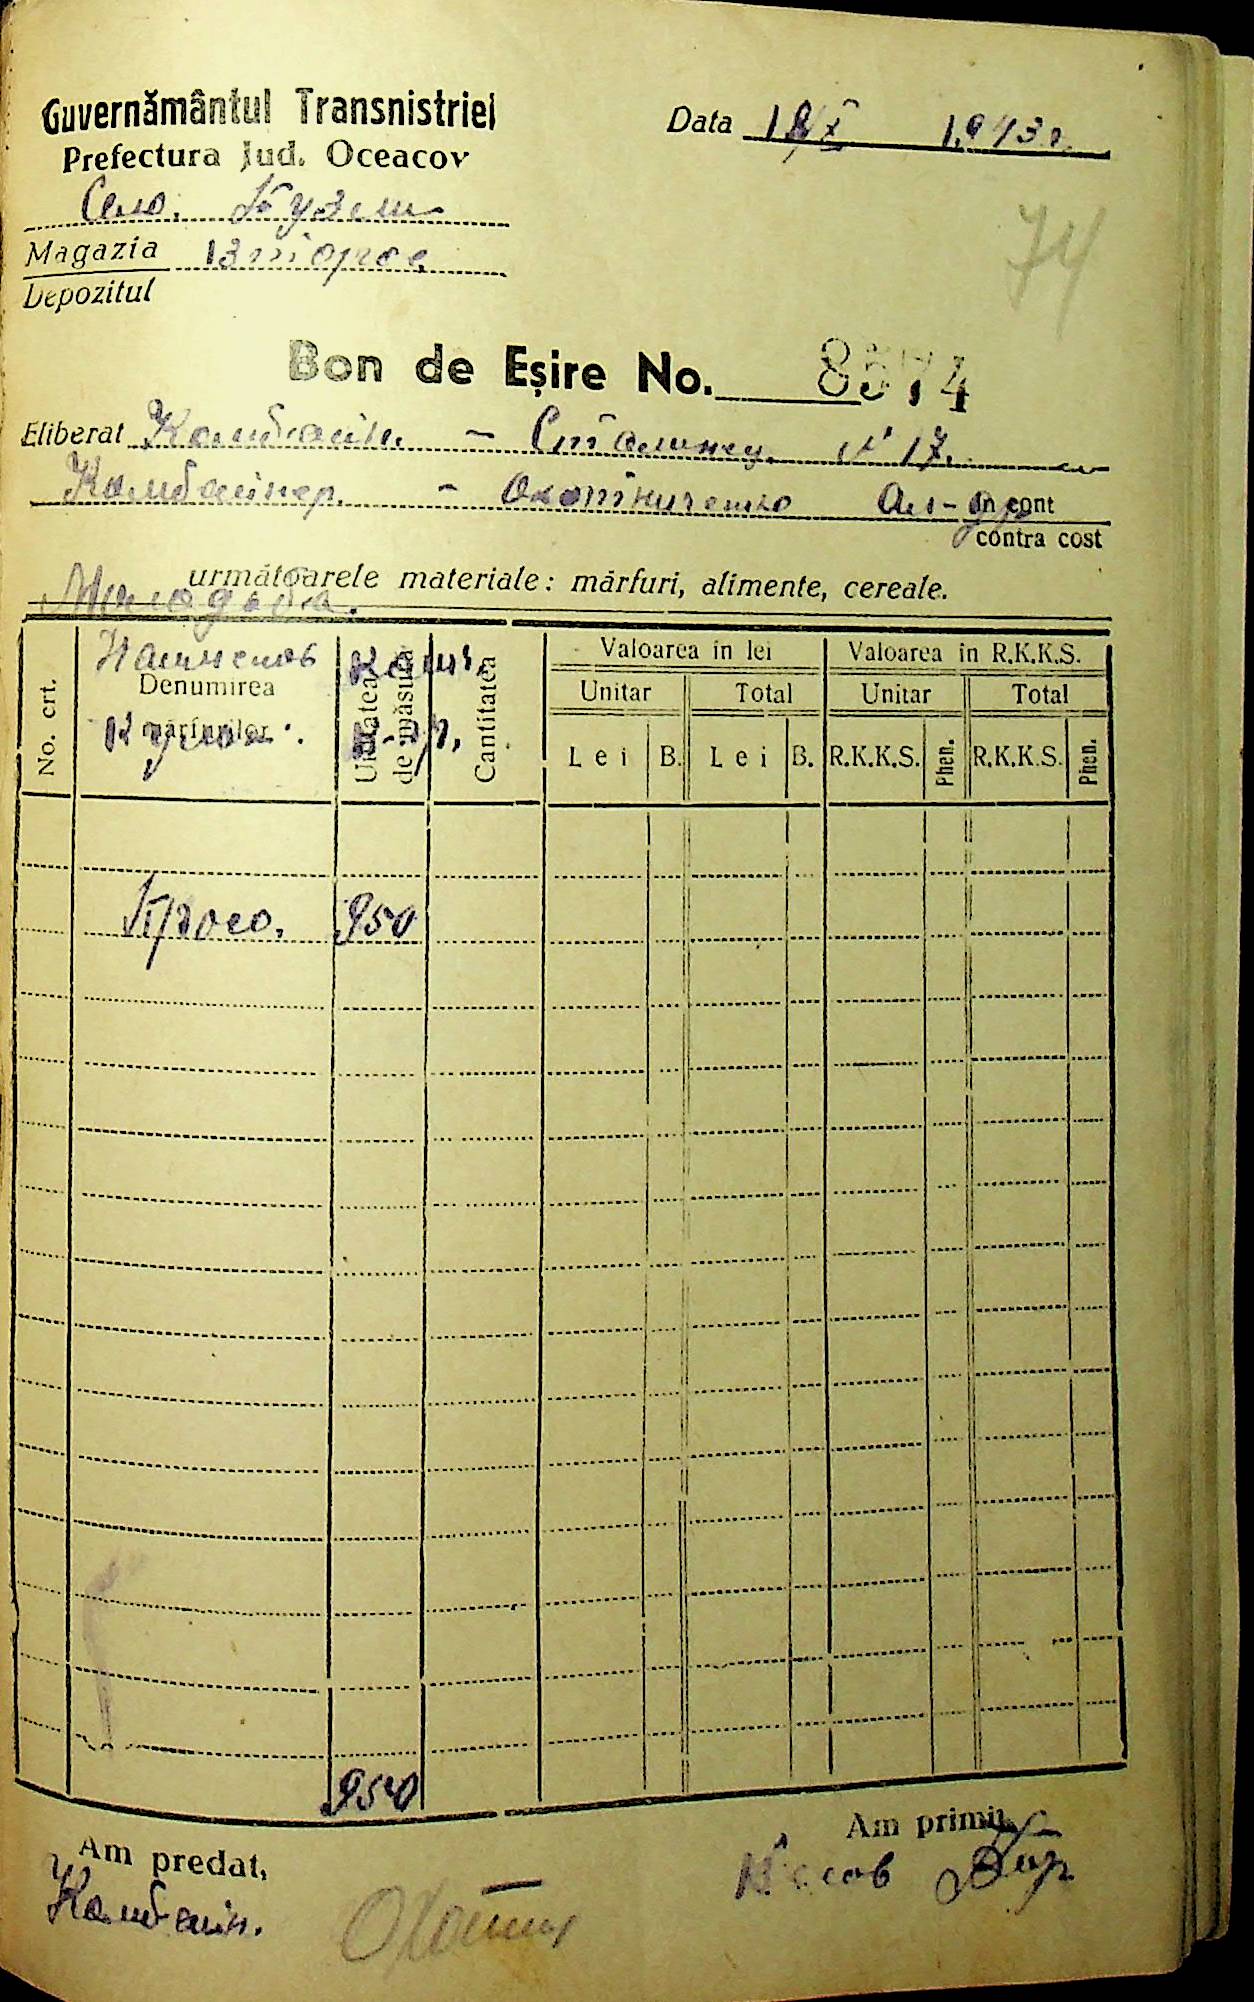 Guvernământul Transnistriei
Data 18/X 1943 г.
Prefectura Jud. Oceacov
Село.
Magazia Второе
74
Depozitul
Bon de Eșire No. 8574
Eliberat Комбайн. - Сталинец № 17.
Комбайнер. - in cont
contra cost
următoarele materiale: mărfuri, alimente, cereale.
Молодьба.
No. crt.
Наименов
Denumirea
mărfurilor
культ.
Unitatea de măsură
Колич.
Cantitatea
Valoarea in lei
Valoarea in R.K.K.S.
Unitar Total Unitar Total
Lei B. Lei B. R.K.K.S. Phen. R.K.K.S. Phen.
Просо. 950
950
Am predat,
Am primit,
Комбайн.
Весов